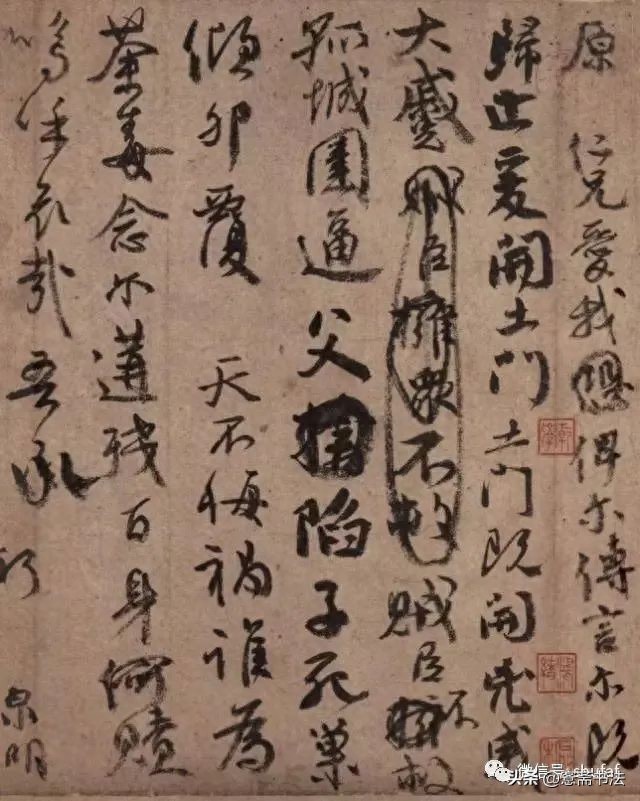 原 仁兄愛我俾尔傳言尔既
歸止爰開土門土門既開凶威
大蹙賊臣擁眾不救賊臣不救
孤城圍逼父陷子死巢
傾卵覆 天不悔禍誰為
荼毒念尔遘殘百身何贖
嗚呼哀哉吾承
泉明
微信号: shufaf
头条 书法